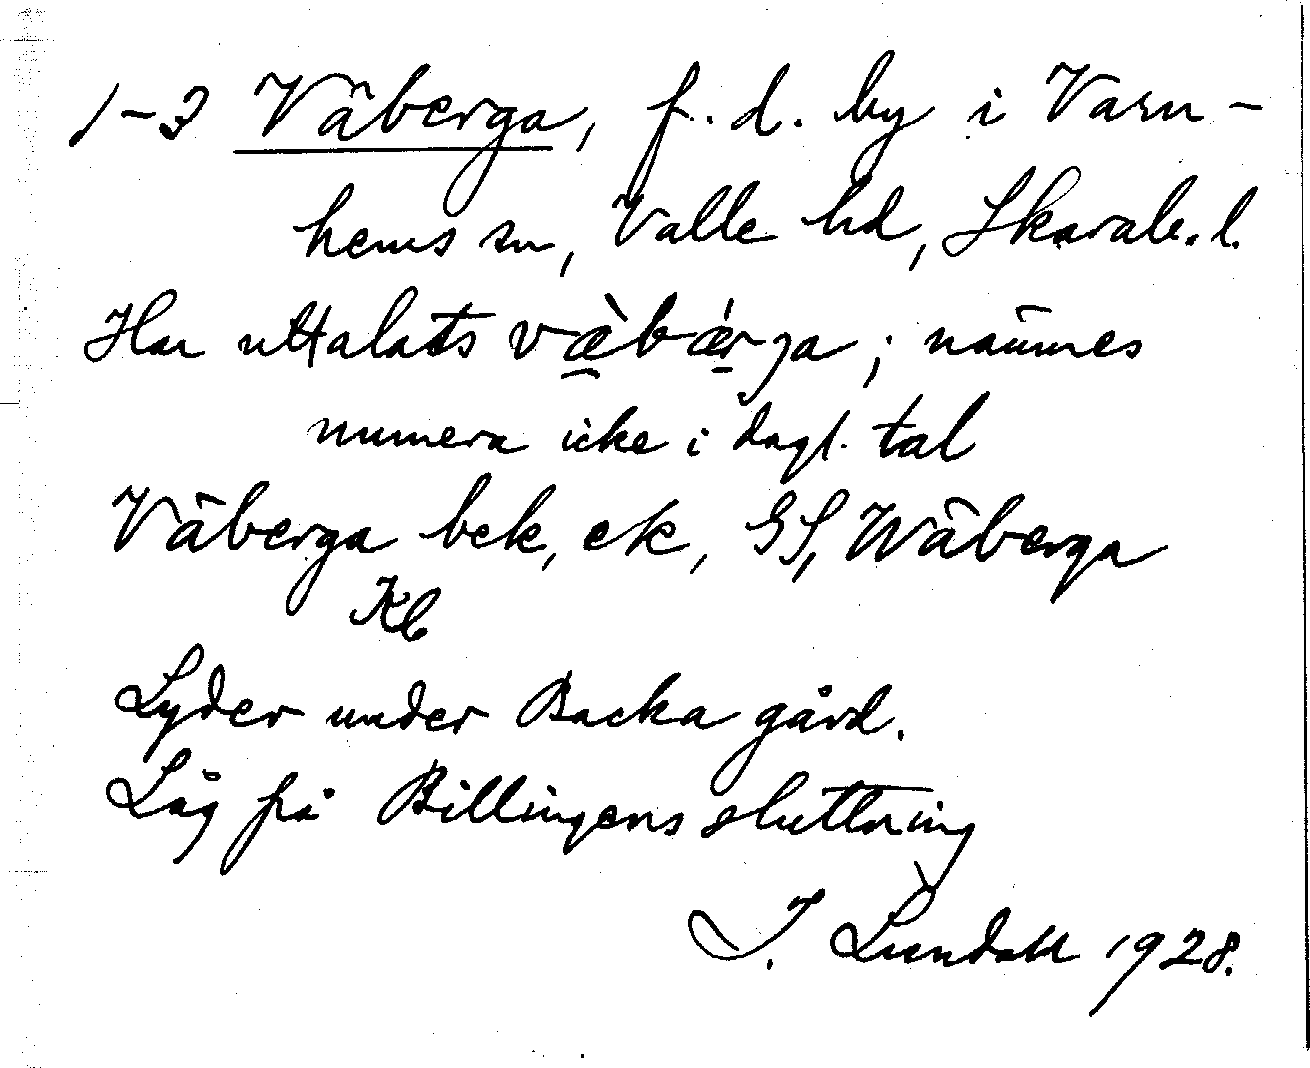 1-3 Väberga, f. d. by i Varn-
hems sn, Valle hd, Skarab. l.
Har uttalats væ̀bærga; nämnes
numera icke i dagl. tal
Väberga bek, ek, GS, Wäberga
Kb
Lyder under Backa gård.
Låg på Billingens sluttning
I. Lundahl 1928.